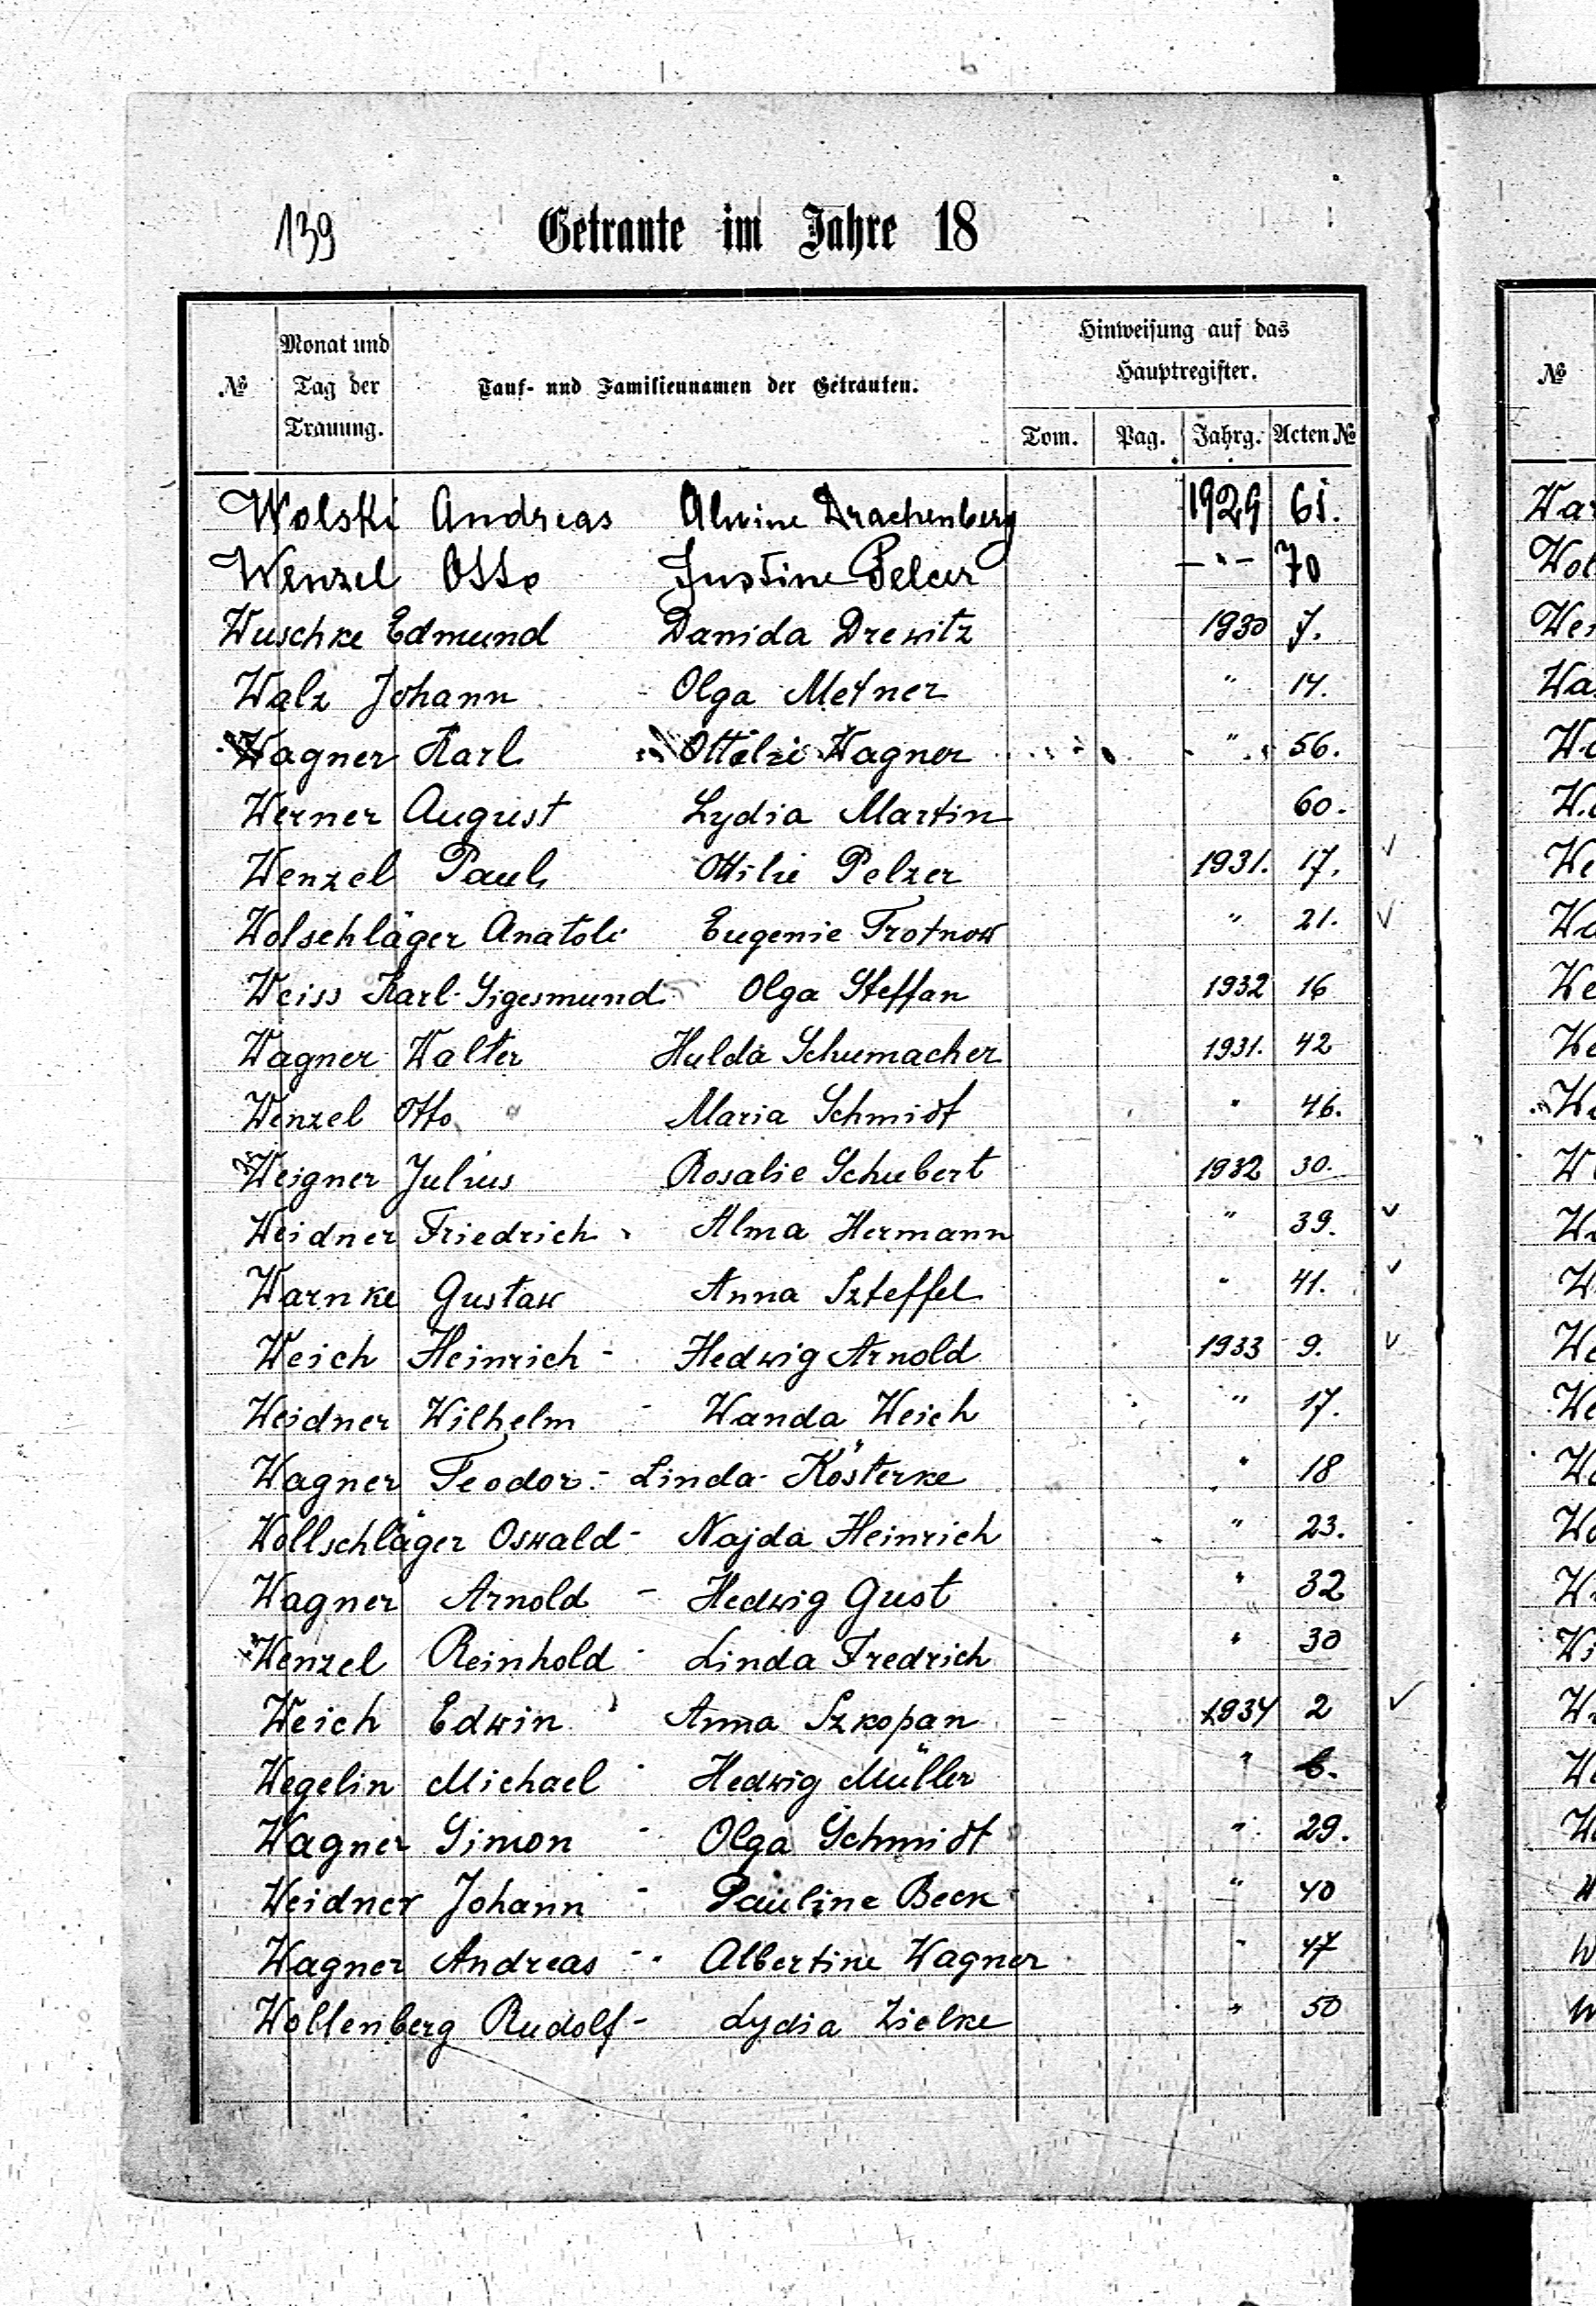 139 Getraute im Jahre 18
№ Monat und Tag der Trauung. Tauf- und Familiennamen der Getrauten. Hinweisung auf das Hauptregister.
Tom. Pag. Jahrg. Acten №
Wolski Andreas Alwine Drachenberg 1929 61.
Wenzel Otto Justine Pelcer -"- 70
Wuschke Edmund Danida Drewitz 1930 7.
Walz Johann - Olga Metner " 14.
Wagner Karl Ottilie Wagner " 56.
Werner August Lydia Martin 60.
Wenzel Paul Ottilie Pelzer 1931. 17. ✓
Wolschläger Anatoli Eugenie Trotnow " 21. ✓
Weiss Karl-Sigesmund Olga Steffan 1932 16
Wagner Walter Hulda Schumacher 1931. 42
Wenzel Otto Maria Schmidt " 46.
Weigner Julius Rosalie Schubert 1932 30.
Weidner Friedrich Alma Hermann " 39. ✓
Warnke Gustaw Anna Szteffel " 41. ✓
Weich Heinrich - Hedwig Arnold 1933 9. ✓
Weidner Wilhelm - Wanda Weich " 17.
Wagner Teodor - Linda Kösterke " 18
Wollschläger Oswald - Najda Heinrich " 23.
Wagner Arnold - Hedwig Gust " 32
Wenzel Reinhold - Linda Fredrich " 30
Weich Edwin Anna Szkopan 1934 2 ✓
Wegelin Michael - Hedwig Müller " 6.
Wagner Simon - Olga Schmidt " 29.
Weidner Johann - Pauline Beck " 40
Wagner Andreas - Albertine Wagner " 47
Wollenberg Rudolf - Lydia Zielke " 50
№